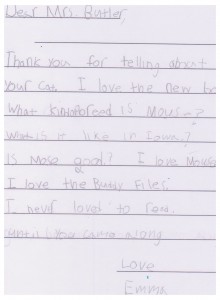 Dear Mrs. Butler,
Thank you for telling about
your cat. I love the new bo
What kind of breed is Mouse?
What is it like in Iowa?
Is Mose good? I love Mouse
I love the Buddy Files.
I never loved to read
until you came along
Love
Emma